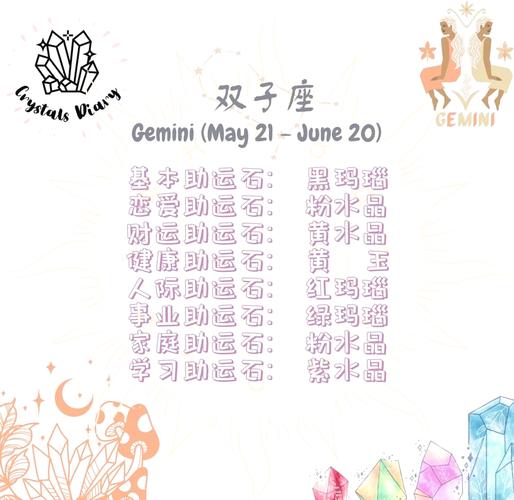 Crystals Diary
GEMINI
双子座
Gemini (May 21 – June 20)
基本助运石： 黑玛瑙
恋爱助运石： 粉水晶
财运助运石： 黄水晶
健康助运石： 黄 玉
人际助运石： 红玛瑙
事业助运石： 绿玛瑙
家庭助运石： 粉水晶
学习助运石： 紫水晶